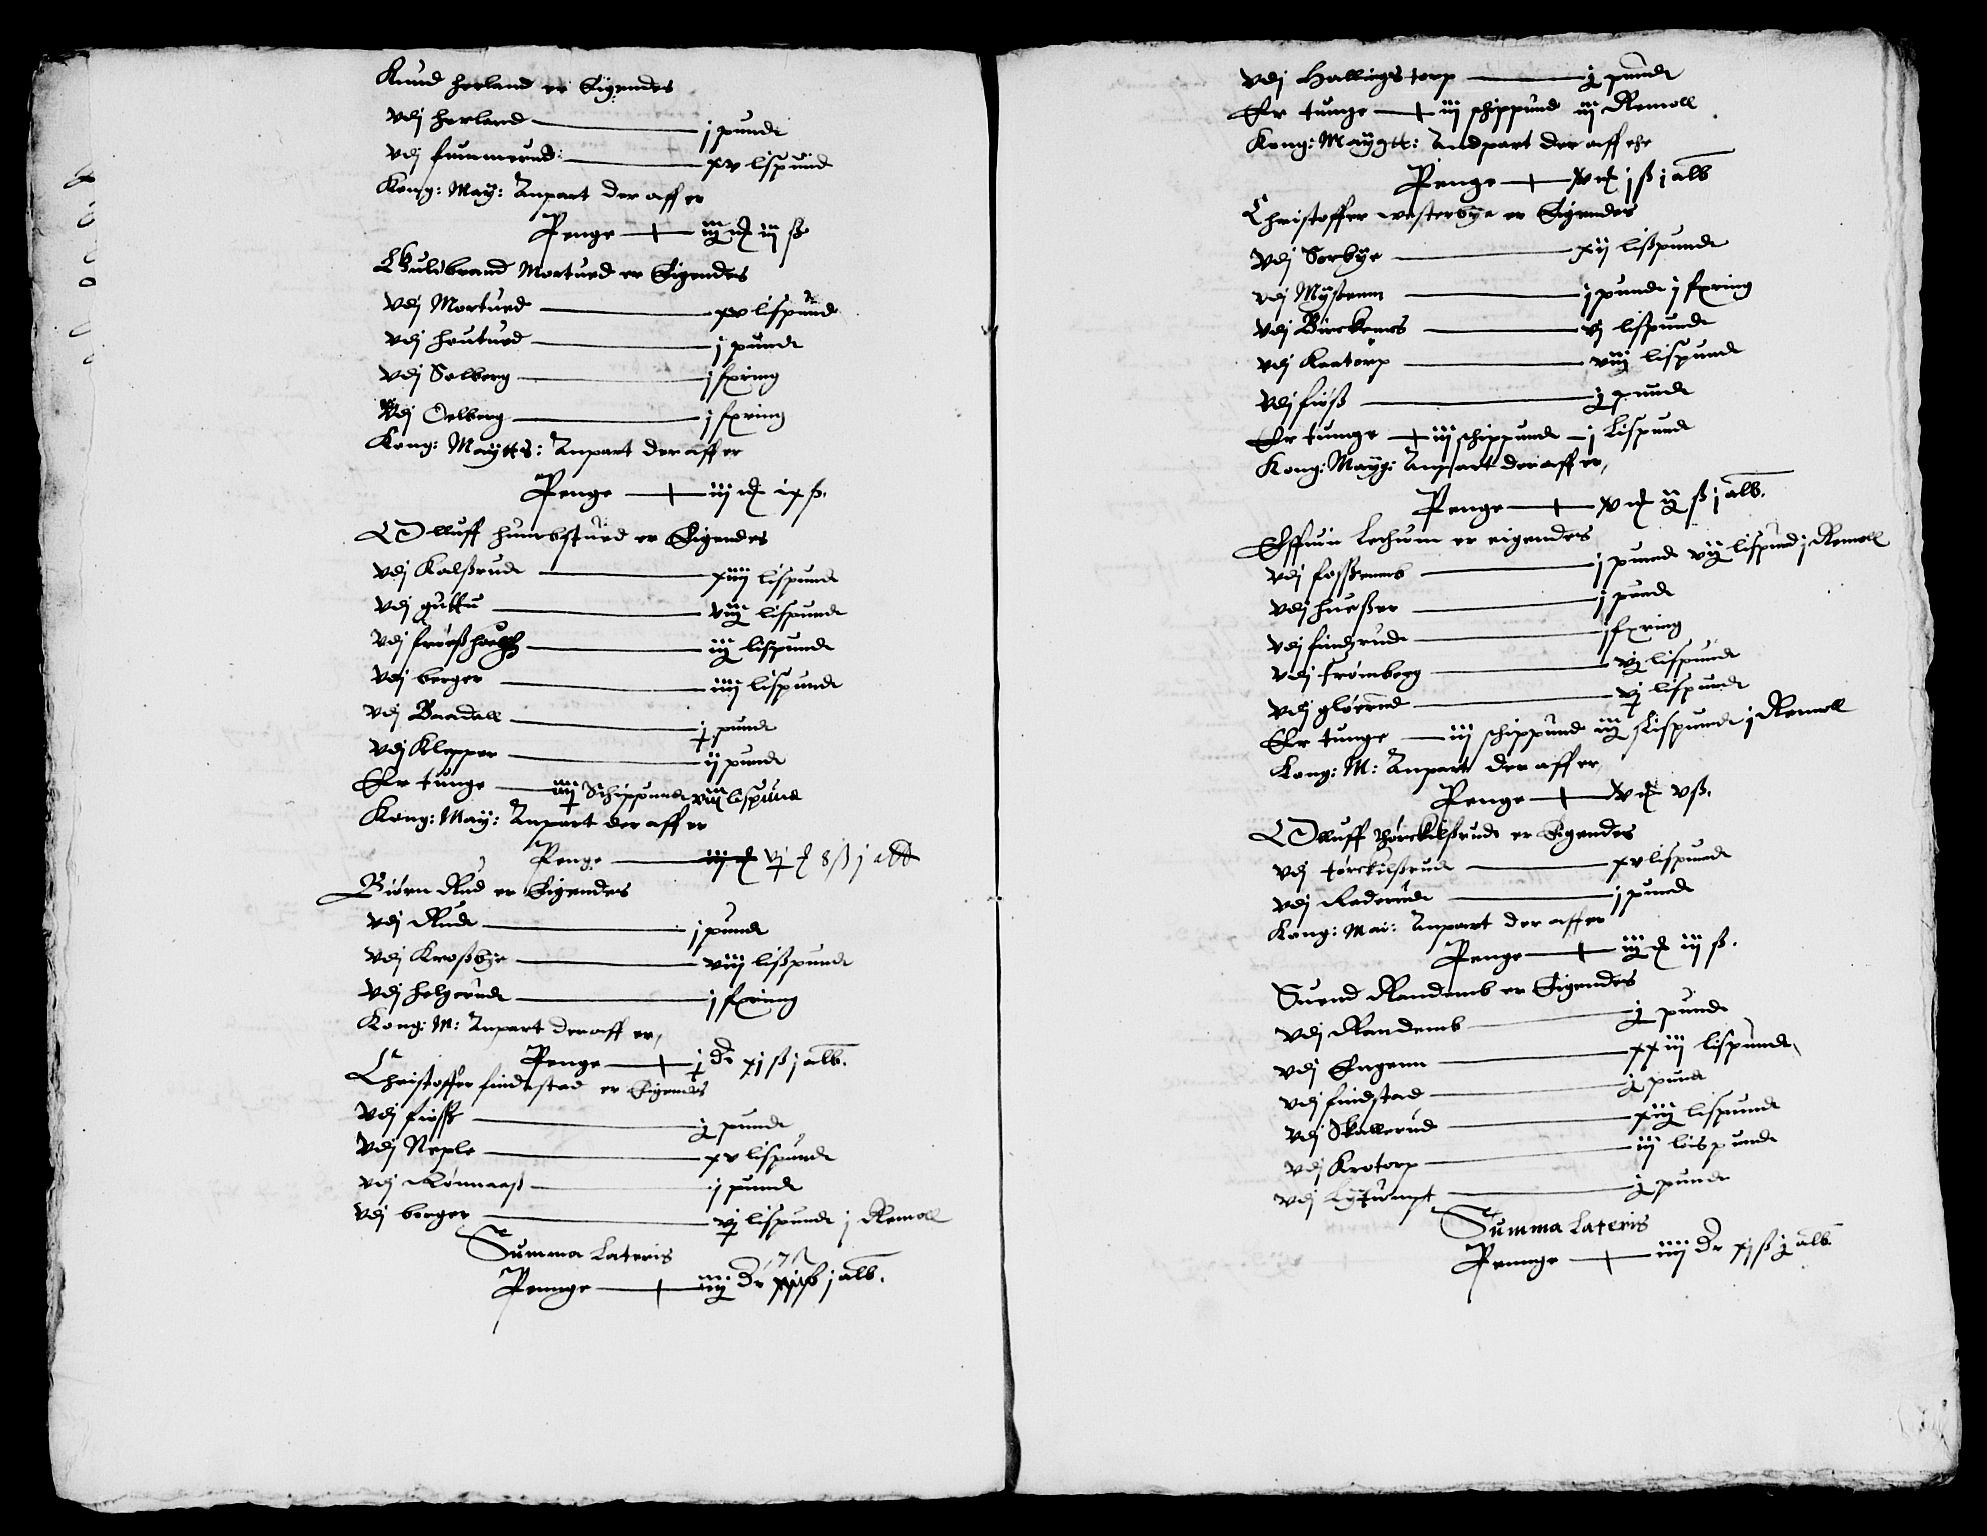 Knud herland er Eigendes
Vdj herland — j pundt
Vdj fummerud: — xv lispund
Kong: May: Anpart der aff er
Penge — iiij iij ß
Guldbrand Mortued er Eigendes
Vdj Mortued — xv lispund
Vdj houtued — j pundt
Vdj Solberg — j fxring
Vdj Oelberg — j fxring
Kong: Maytts: Anpart der aff er
Penge — iij ix ß.
Olluff er Eigendes
Vdj Kalßrudt — xiiij lispundt
Vdj guttu — lispundt
Vdj — lispundt
Vdj berger — iiij lispundt
Vdj Baadall — j pundt
Vdj Klepper — ij pundt
Er tunge — Schippundt lispund
Kong: May: Anpart der aff er
Penge — 8 ß j alb
Biørn Rud er Eigendes
Vdj Rudt — j pundt
Vdj Kroßbye — viij lißpundt
Vdj helgerudt — j fxring
Kong: M: Anpart der aff er,
Penge — j dr xj ß j alb.
Christoffer findestad er Eigendes
Vdj fiøss — pundt
Vdj Neple — xv lispundt
Vdj Rønnaaß — j pundt
Vdj berger — vj lispundt j Remoll
Summa Lateris
7 ß
Pennge — dr j alb.
Vdj Hallingstorp — pundt
Er tunge — iij schippund iij Remoll
Kong: Maygtt: Andpart der aff ehr
Penge — xv j ß j alb
Christoffer westerbye er Eigendes
Vdj Sorbye — xij lißpundt
Vdj Mysenn — j pundt j fxring
Vdj Birckenes — vj lißpundt
Vdj Kaatorp — viij lispundt
Vdj fiøß — pundt
Er tunge — iij schippundt — j Lispund
Kong: Mayg: Anpart der aff er,
Penge — xv ß j alb.
Effuin Lechum er eigendes
Vdj fossenn — j pundt lispund j Remoll
Vdj hueßer — j pundt
Vdj findzrudt — j fxring
Vdj trømberg — lispundt
Vdj gløerud — vj lispundt
Er tunge — iij schippund Lispundt j Remoll
Kong: M: Anpart der aff er,
Penge — xv v ß.
Olluff thorckilßrudt er Eigendes
Vdj torckilßrudt — xv lispundt
Vdj Raderudt — j pundt
Kong: Mai: Anpart der aff er
Penge — iij iij ß.
Suend Randemb er Eigendes
Vdj Randemb — pundt
Vdj Engenn — xxiij lispundt
Vdj findstad — pundt
Vdj Skallerud — lispundt
Vdj Krotorp — iij lispundt
Vdj — pundt
Summa Lateris
Pennge — iiij dr xj ß alb